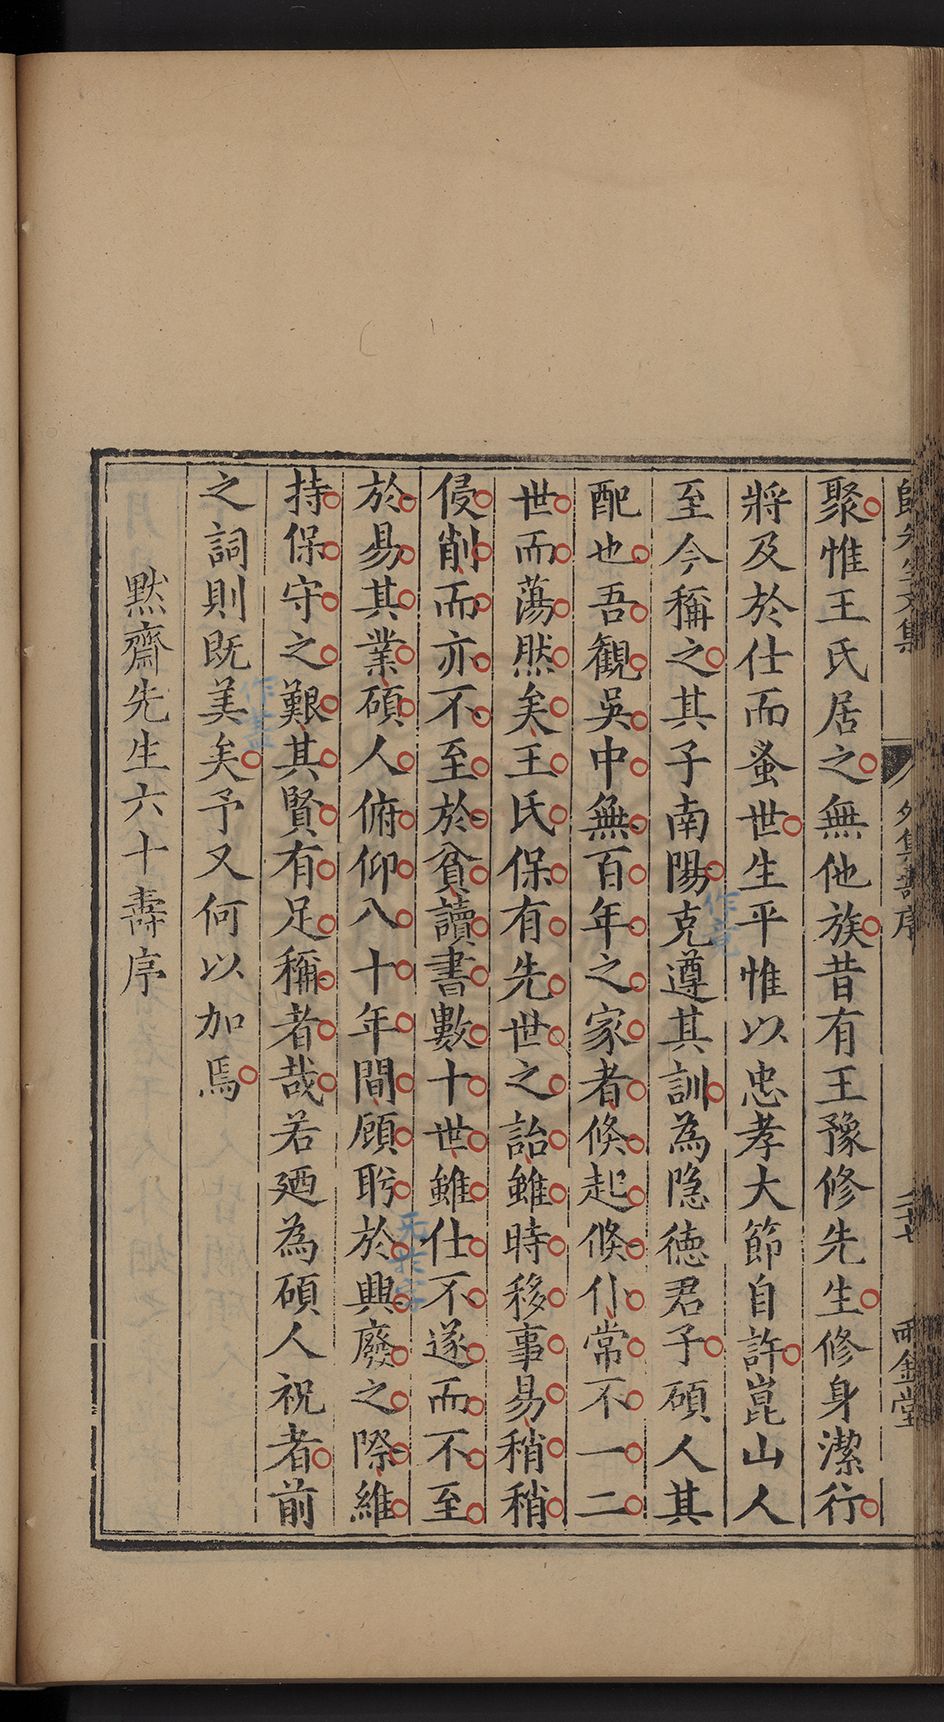 歸先生文集 外集壽序 二十七 兩金堂
聚惟王氏居之無他族昔有王豫修先生修身潔行
將及於仕而蚤世生平惟以忠孝大節自許崑山人
至今稱之其子南陽克遵其訓為隱德君子碩人其
作竟
配也吾觀吳中無百年之家者倏起倏仆常不一二
世而蕩然矣王氏保有先世之詒雖時移事易稍稍
侵削而亦不至於貧讀書數十世雖仕不遂而不至
於易其業碩人俯仰八十年間顧盻於興廢之際維
无於字
持保守之艱其賢有足稱者哉若廼為碩人祝者前
之詞則既美矣予又何以加焉
默齋先生六十壽序